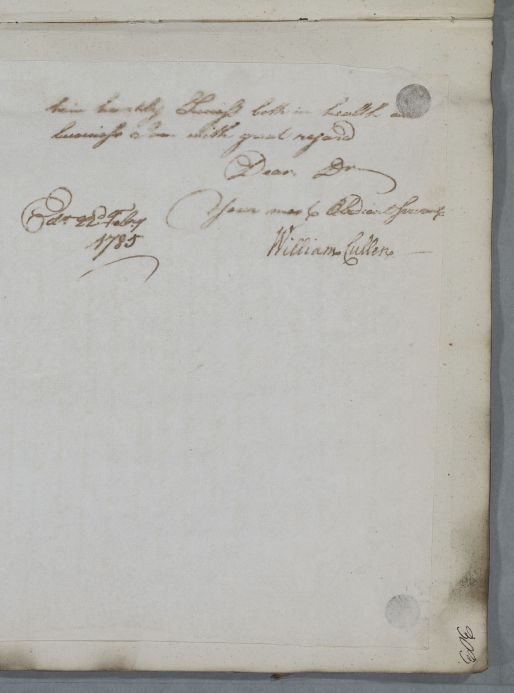 him heartily Success both in health and
business I am with great regard
Dear Dr
Your most Obedient Servant
Edr 22d Feby
1785
William Cullen